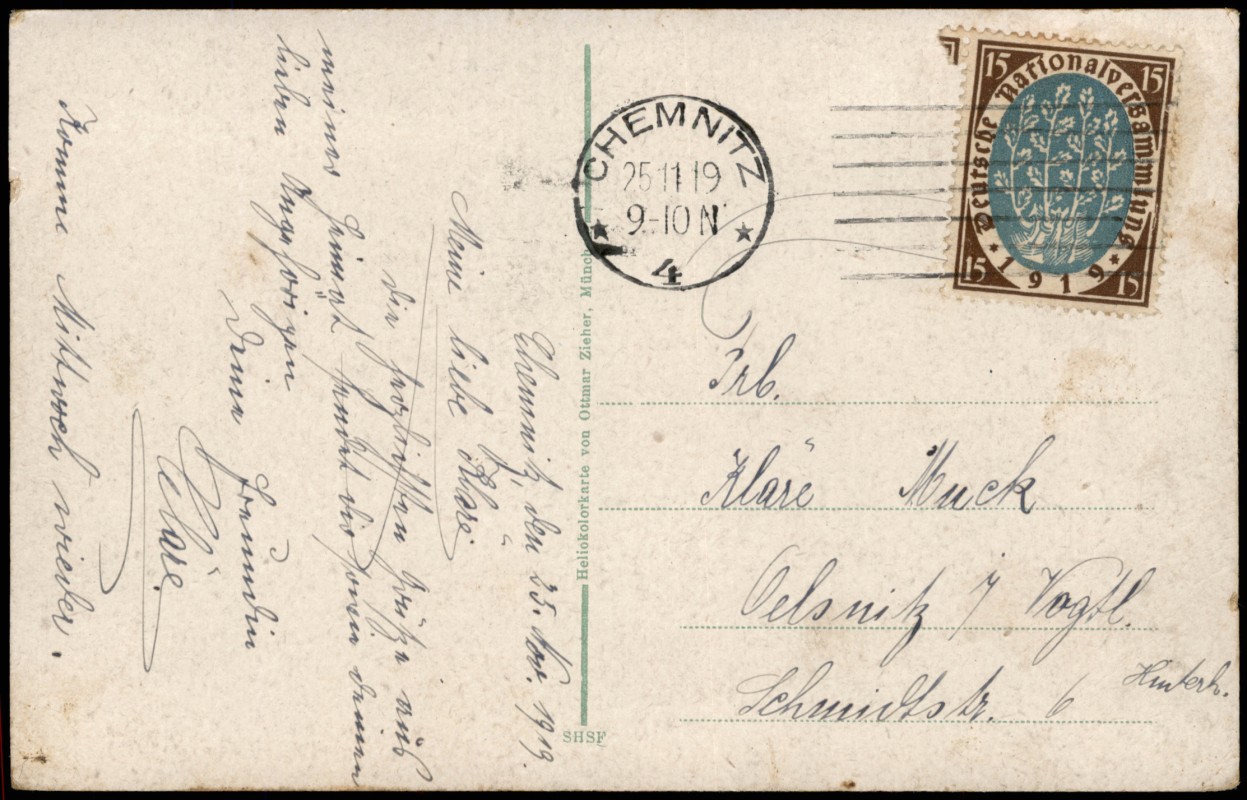 Chemnitz, den 25. Nov. 1919.
Meine liebe Kläre.
die herzlichsten Grüße aus
meiner
Heimat sendet dir sowie deinen
lieben Angehörigen
deine Freundin
Cläre.
Komme Mittwoch wieder.
Heliokolorkarte von Ottmar Zieher, Münch
SHSF
CHEMNITZ
25.11.19
9-10 N
4
15 15
Deutsche Nationalversammlung
* 1919 *
15 15
Frl.
Kläre Muck
Oelsnitz i/ Vogtl.
Schmidtstr. 6
Hinterh.